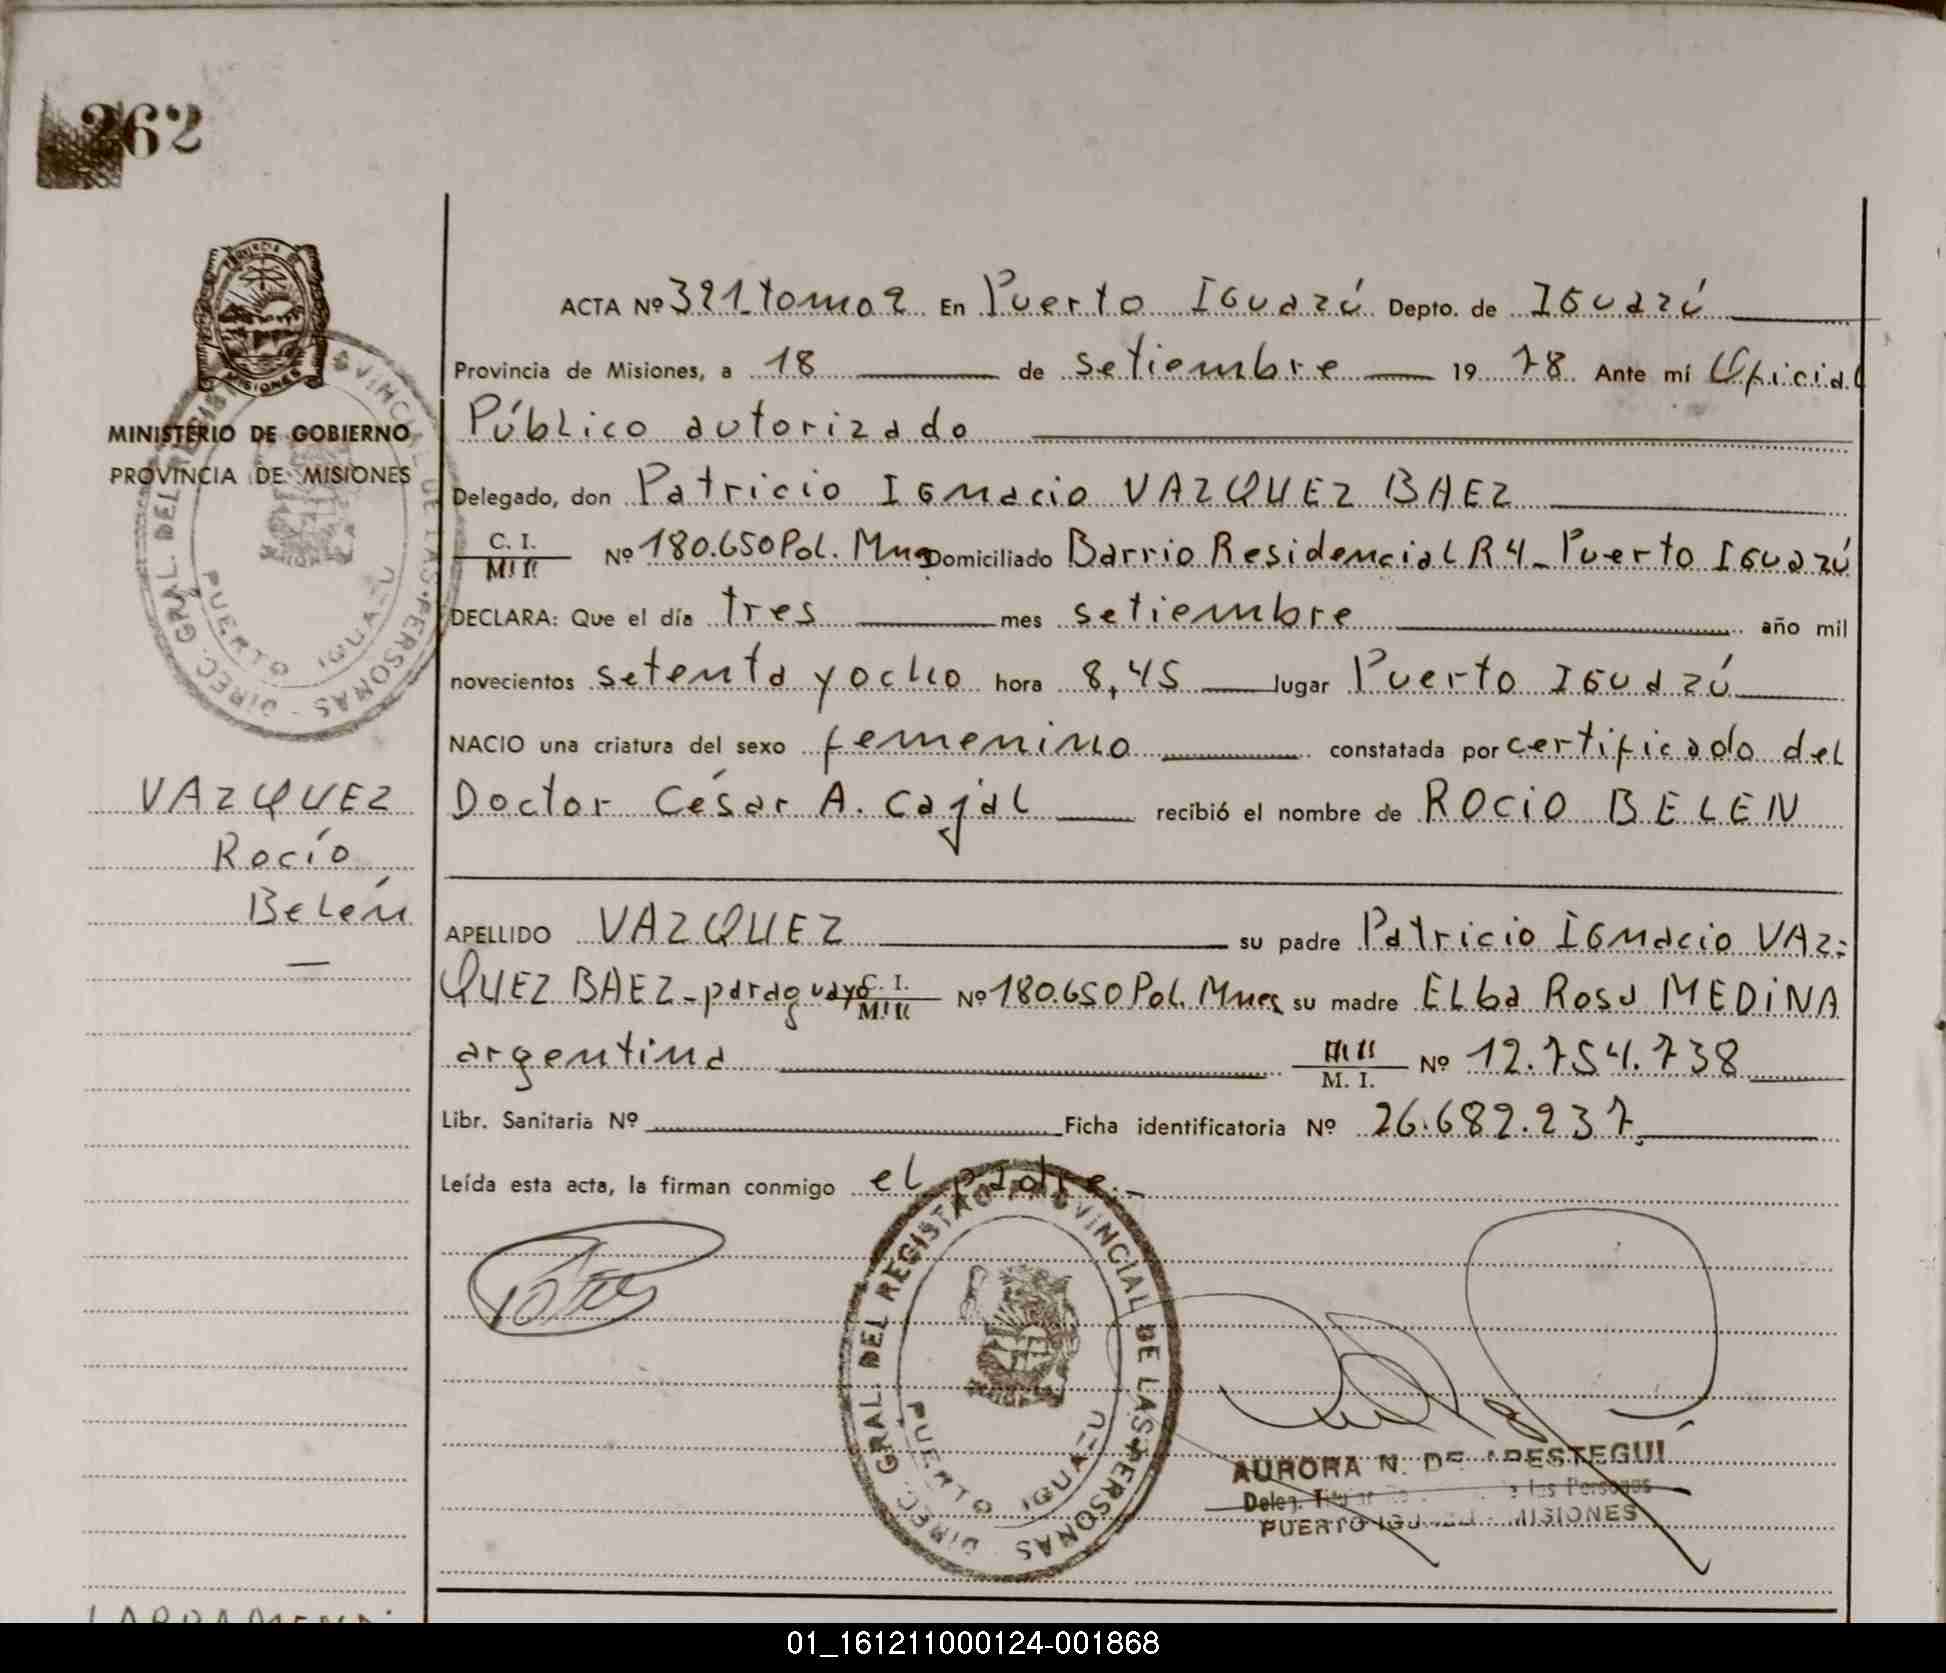 262
MINISTERIO DE GOBIERNO
PROVINCIA DE MISIONES
DIREC. GRAL. DEL REGISTRO PROVINCIAL DE LAS PERSONAS
PUERTO IGUAZU
VAZQUEZ
Rocío
Belén
—
ACTA Nº 321 tomo 2 En Puerto IGuazú Depto. de IGuazú
Provincia de Misiones, a 18 de setiembre 19 78 Ante mí Oficial
Público autorizado
Delegado, don Patricio IGnacio VAZQUEZ BAEZ
C. I.
M. I. Nº 180.650 Pol. Mnes Domiciliado Barrio Residencial R 4 - Puerto IGuazú
DECLARA: Que el día tres mes setiembre año mil
novecientos setenta y ocho hora 8,45 lugar Puerto IGuazú
NACIO una criatura del sexo femenino constatada por certificado del
Doctor César A. Cajal recibió el nombre de ROCIO BELEN
APELLIDO VAZQUEZ su padre Patricio IGnacio VAZ=
QUEZ BAEZ - paraguayo C. I.
M. I. Nº 180.650 Pol. Mnes su madre ELba Rosa MEDINA
argentina
M. I. Nº 12.754.738
Libr. Sanitaria Nº Ficha identificatoria Nº 26.682.237
Leída esta acta, la firman conmigo el padre.-
DIREC. GRAL. DEL REGISTRO PROVINCIAL DE LAS PERSONAS
PUERTO IGUAZU
AURORA N. DE ARESTEGUI
Deleg. Titular de las Personas
PUERTO IGUAZU - MISIONES
01_161211000124-001868